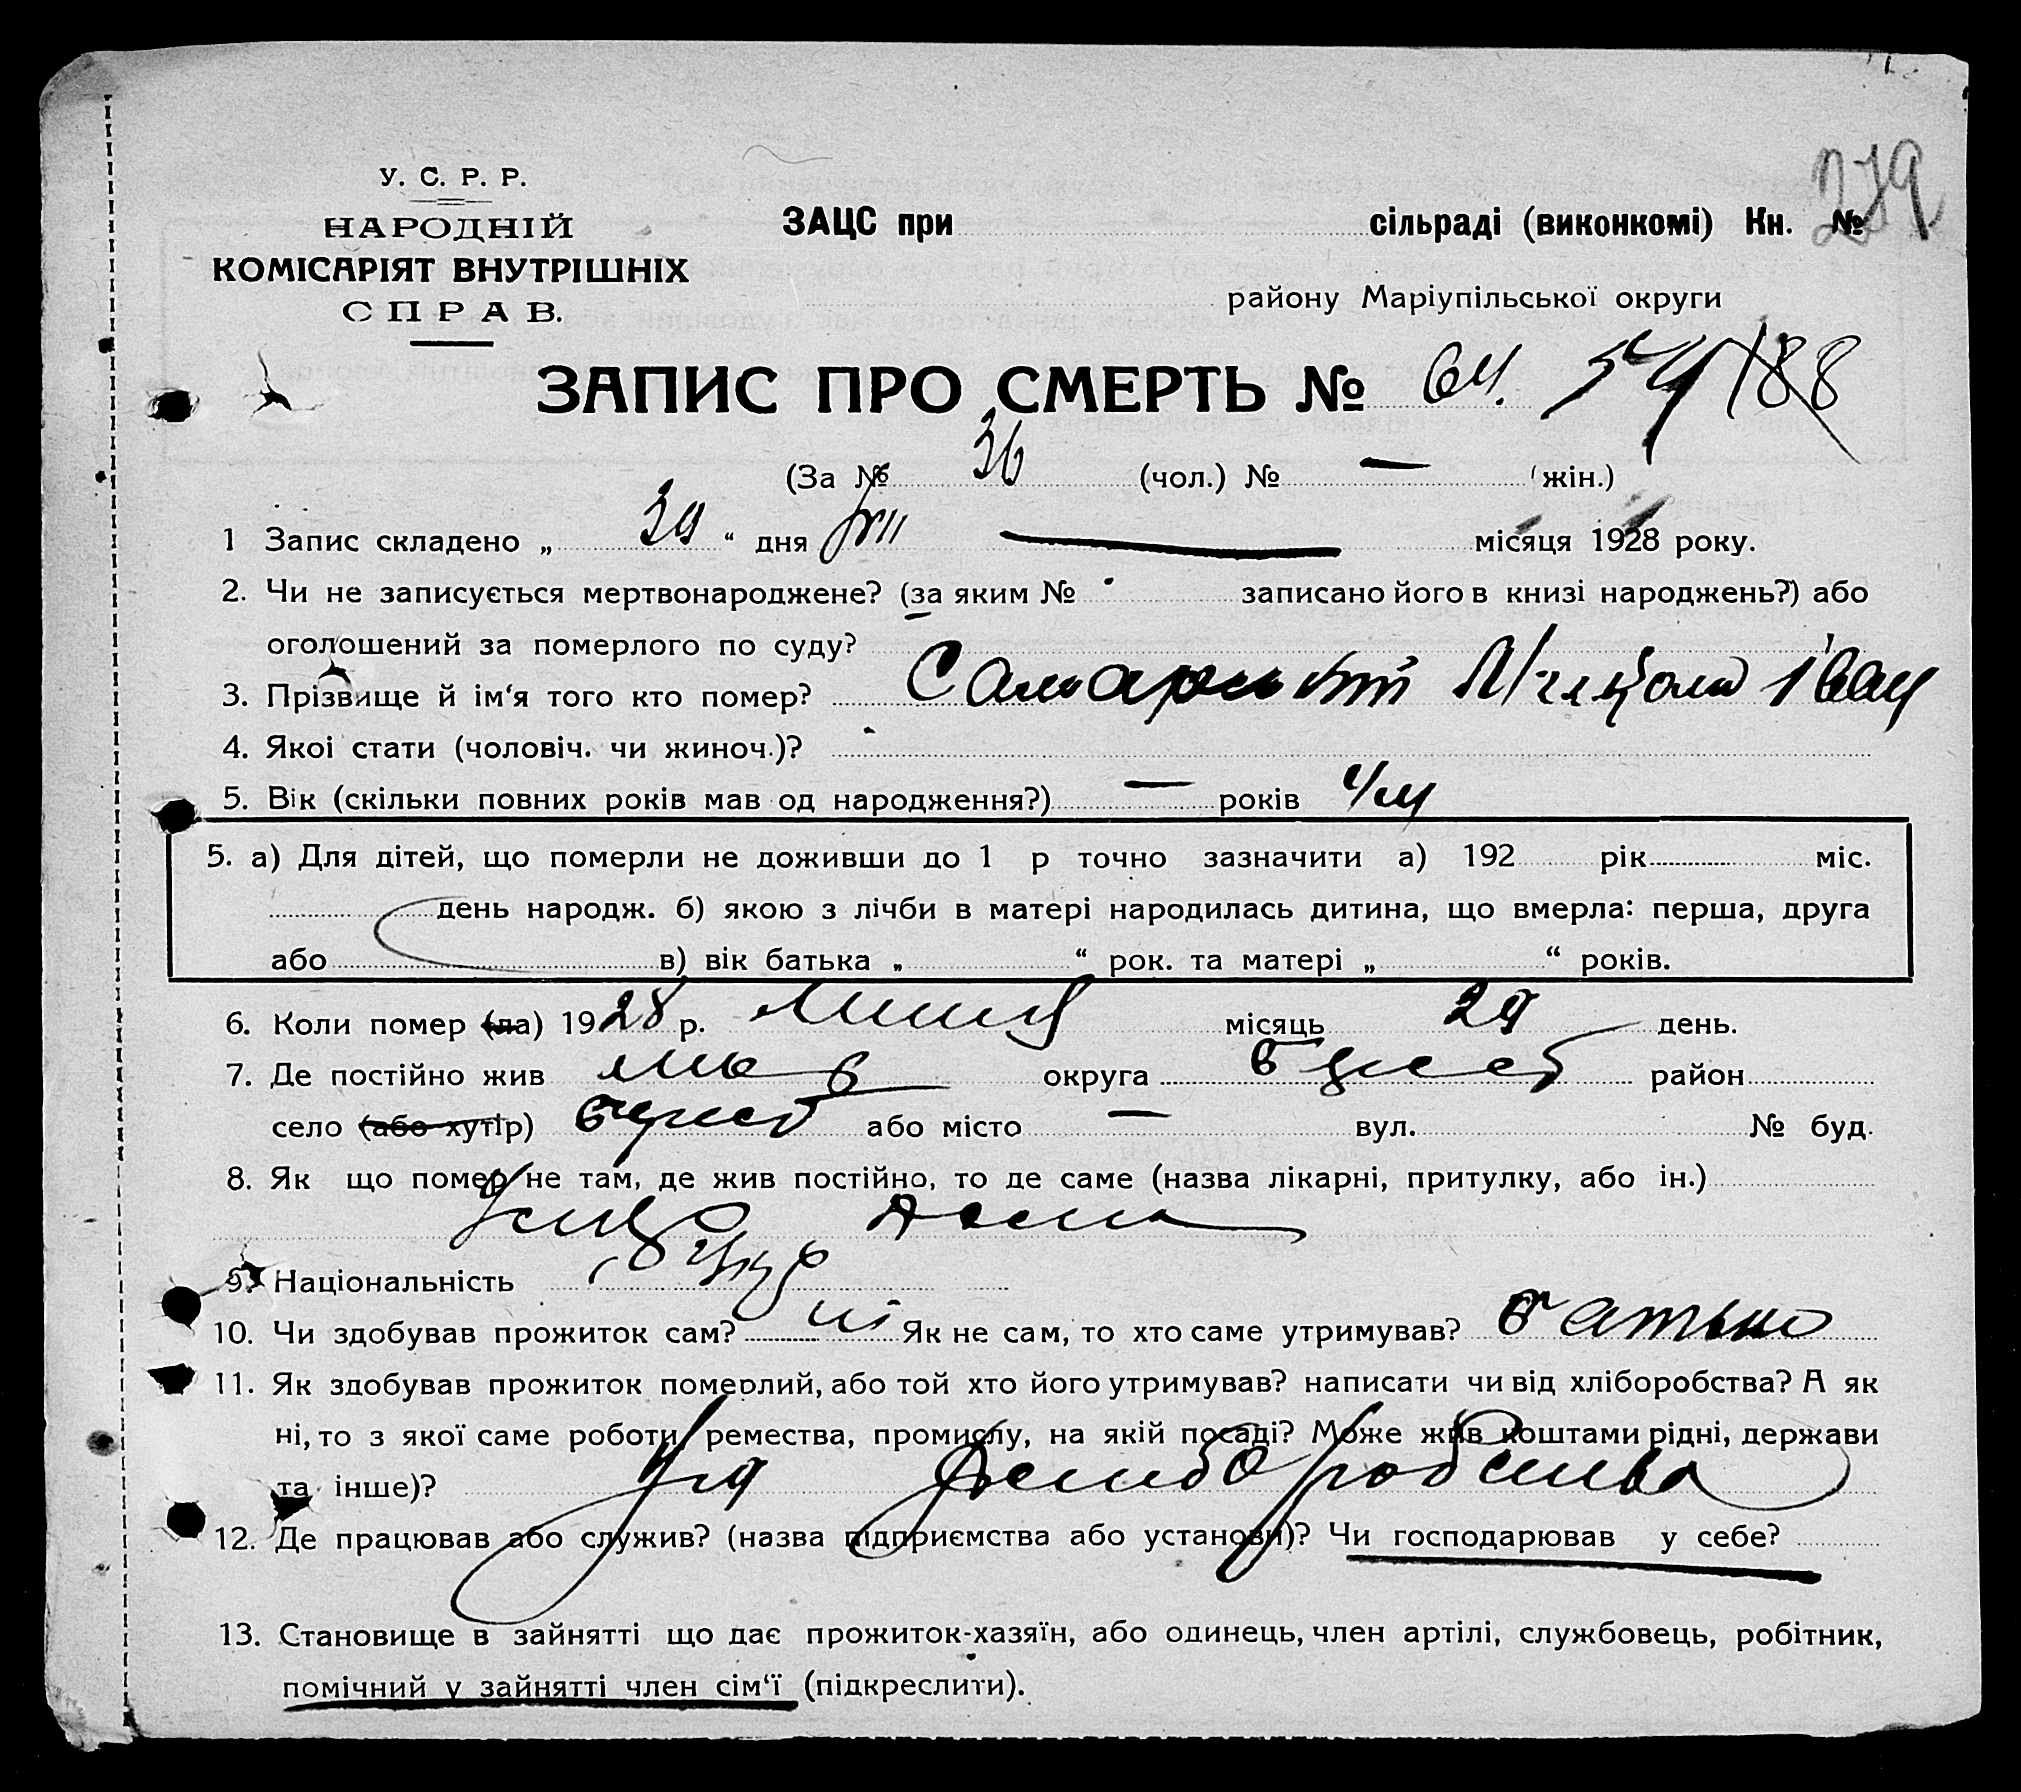 279
У. С. Р. Р.
НАРОДНІЙ
КОМІСАРІЯТ ВНУТРІШНІХ
СПРАВ.
ЗАЦС при сільраді (виконкомі) Кн. №
району Маріупільської округи
ЗАПИС ПРО СМЕРТЬ № 64. 54 188
(За № 36 (чол.) № — (жін.)
1 Запис складено „ 30 “ дня VII місяця 1928 року.
2. Чи не записується мертвонароджене? (за яким № записано його в книзі народжень?) або
оголошений за померлого по суду?
3. Прізвище й ім‘я того кто помер? Микола Іван
4. Якоі стати (чоловіч. чи жиноч.)?
5. Вік (скільки повних років мав од народження?) — років 4/м
5. а) Для дітей, що померли не доживши до 1 р точно зазначити а) 192 рік міс.
день народж. б) якою з лічби в матері народилась дитина, що вмерла: перша, друга
або в) вік батька „ “ рок. та матері „ “ років.
6. Коли помер (ла) 1928 р. липня місяць 29 день.
7. Де постійно жив округа район
село (або хутір) або місто — вул. № буд.
8. Як що помер не там, де жив постійно, то де саме (назва лікарні, притулку, або ін.)
дома
9. Національність
10. Чи здобував прожиток сам? ні Як не сам, то хто саме утримував? батько
11. Як здобував прожиток померлий, або той хто його утримував? написати чи від хліборобства? А як
ні, то з якої саме роботи, ремества, промислу, на якій посаді? Може жив коштами рідні, держави
та інше)? хліборобства
12. Де працював або служив? (назва підприємства або установи)? Чи господарював у себе?
13. Становище в зайнятті що дає прожиток-хазяїн, або одинець, член артілі, службовець, робітник,
помічний у зайнятті член сім‘ї (підкреслити).